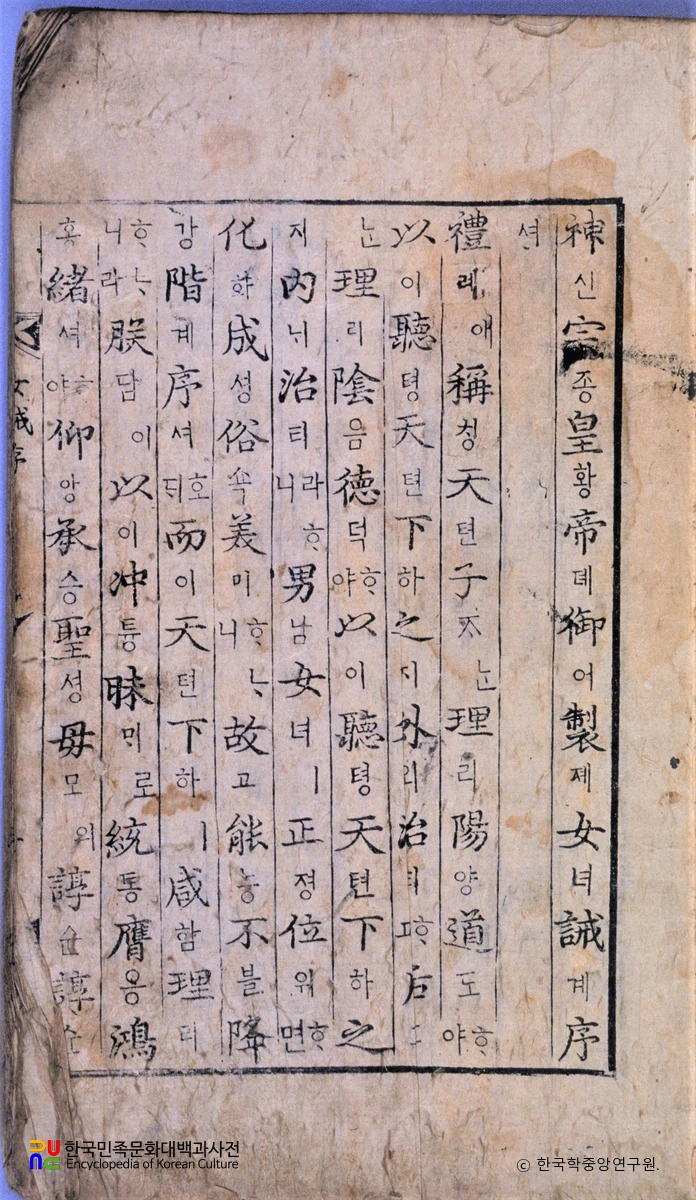 神신宗종皇황帝뎨御어製졔女녀誡계序
셔
禮례애稱칭天텬子ᄌᆞᄂᆞᆫ理리陽양道도ᄒᆞ야
以이聽텽天텬下하之지外외治티ᄒᆞ고后
ᄂᆞᆫ理리陰음德덕ᄒᆞ야以이聽텽天텬下하之
지內ᄂᆡ治티라ᄒᆞ니男남女녀ㅣ正졍位위ᄒᆞ면
化화成셩俗쇽美미ᄒᆞᄂᆞ니故고能능不블降
강階계序셔호ᄃᆡ而이天텬下하ㅣ咸함理리
ᄒᆞᄂᆞ니라朕담이以이冲튱昧ᄆᆡ로統통膺응鴻
홍緖셔ᄒᆞ야仰앙承승聖셩母모의諄슌諄슌
女誡序
한국민족문화대백과사전
Encyclopedia of Korean Culture
© 한국학중앙연구원.